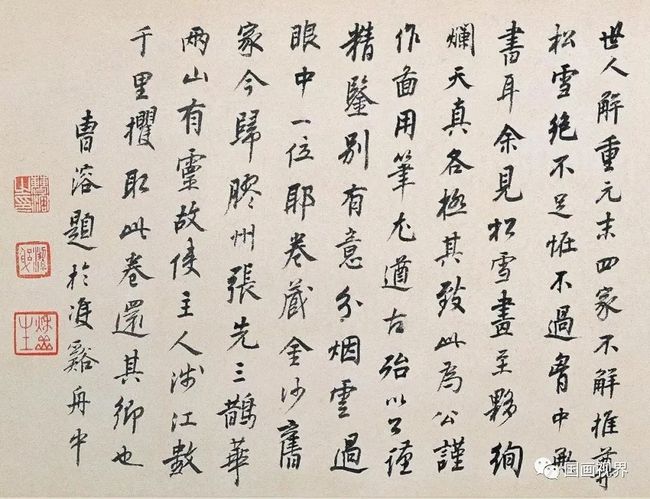 世人解重元末四家不解推尊
松雪絕不足恠不過胷中無
書耳余見松雪畫至夥絢
爛天真各極其致此為公謹
作畫用筆尤遒古殆以公謹
精鑒別有意分烟雲過
眼中一位耶卷藏金沙舊
家今歸膠州張先三鵲華
兩山有靈故使主人涉江數
千里攫取此卷還其鄉也
曹溶題於雙谿舟中
国画视界